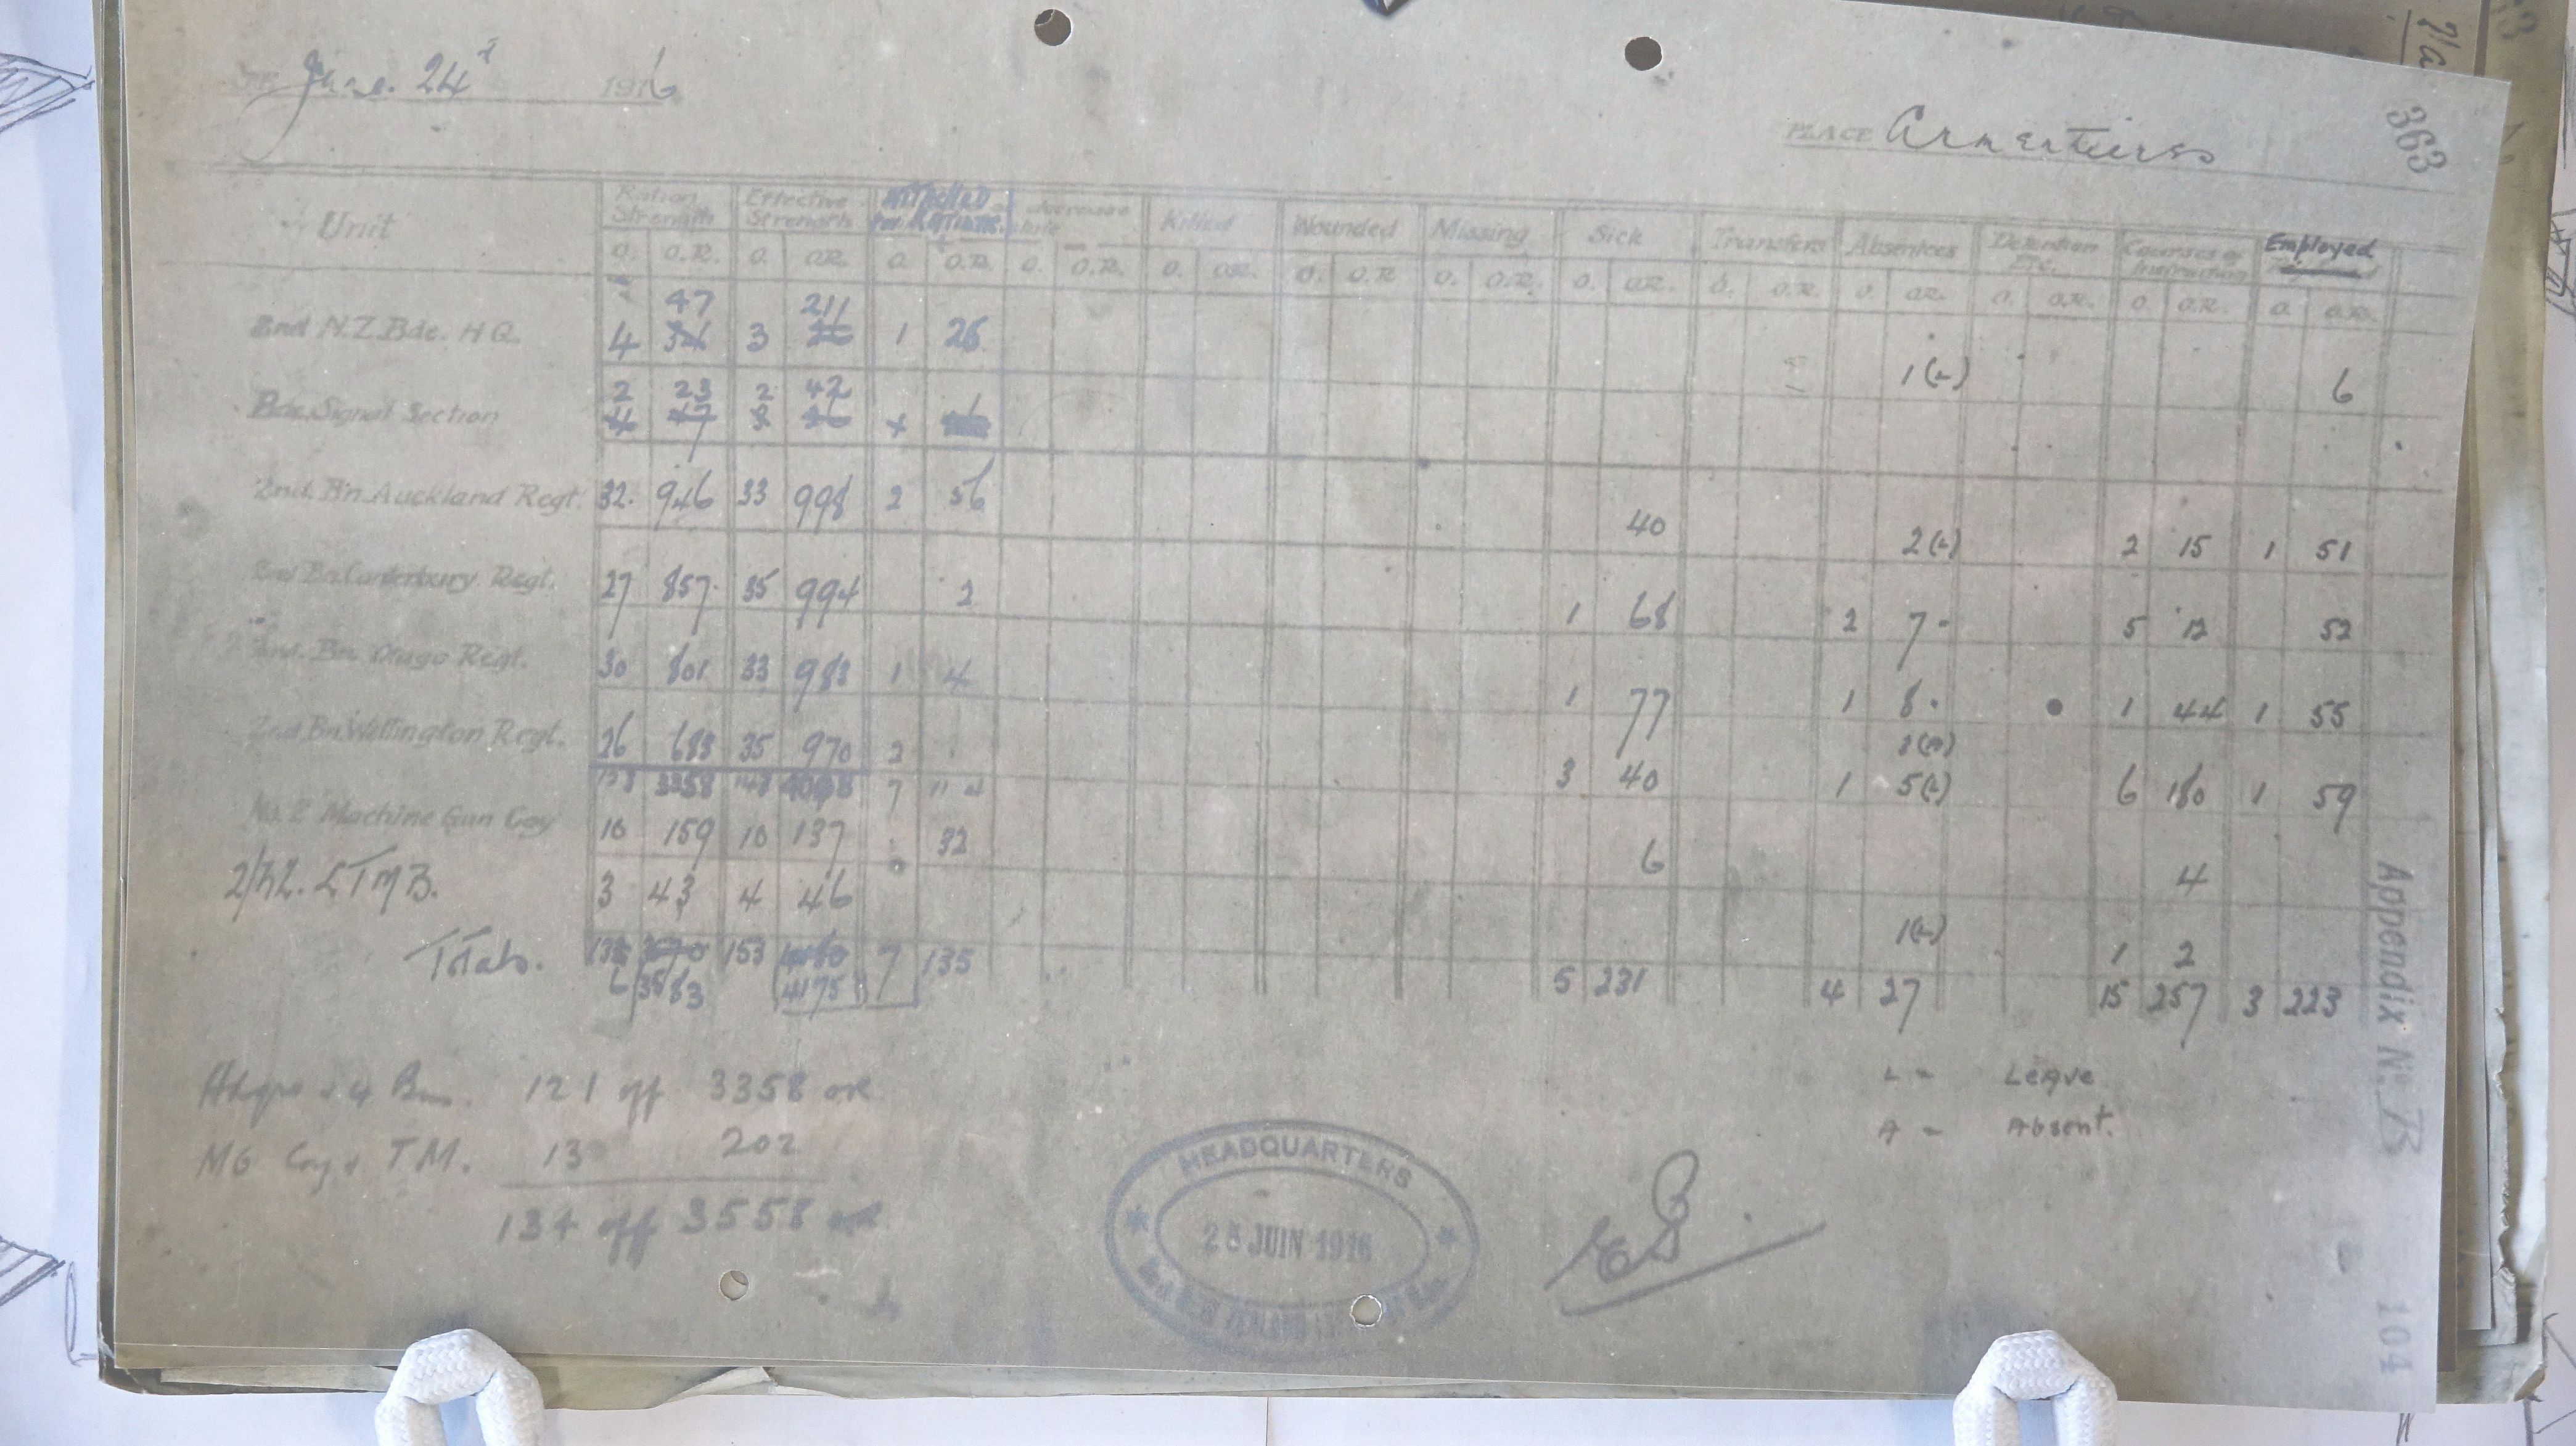 June. 24 1916
PLACE Armentieres
363
Unit Ration Strength Effective Strength Attached for Rations decrease Killed Wounded Missing Sick Transfers Absentees Detention Etc. Courses of Instruction Employed
O. O.R. O. O.R. O. O.R. O. O.R. O. O.R. O. O.R. O. O.R. O. O.R. O. O.R. O. O.R. O. O.R. O. O.R. O. O.R.
47 211
2nd N.Z. Bde. H Q. 4 3 1 26 1(L) 6
2 23 2 42
Bde. Signal Section 4 47
2nd. Bn. Auckland Regt. 32. 946 33 998 2 56 40 2(L) 2 15 1 51
2nd Bn. Canterbury Regt. 27 857. 35 994 2 1 68 2 7 - 5 12 52
2nd. Bn. Otago Regt. 30 801 33 983 1 4 1 77 1 8 . 1 44 1 55
2nd Bn. Wellington Regt. 26 683 35 970 2 3 40 1 5(L) 6 180 1 59
3358 7
No. 2 Machine Gun Coy 10 159 10 137 32 6 4
2/NZ. LTMB. 3 43 4 46 1(L) 1 2
Totals. 153 7 135 5 231 4 27 15 257 3 223
3583 4175
Hdqrs & 4 Bns. 121 off 3358 or.
MG Coy & T M. 13 202
134 off 3558 or
L = Leave
A = Absent.
HEADQUARTERS
25 JUIN 1916
Appendix No. B
104